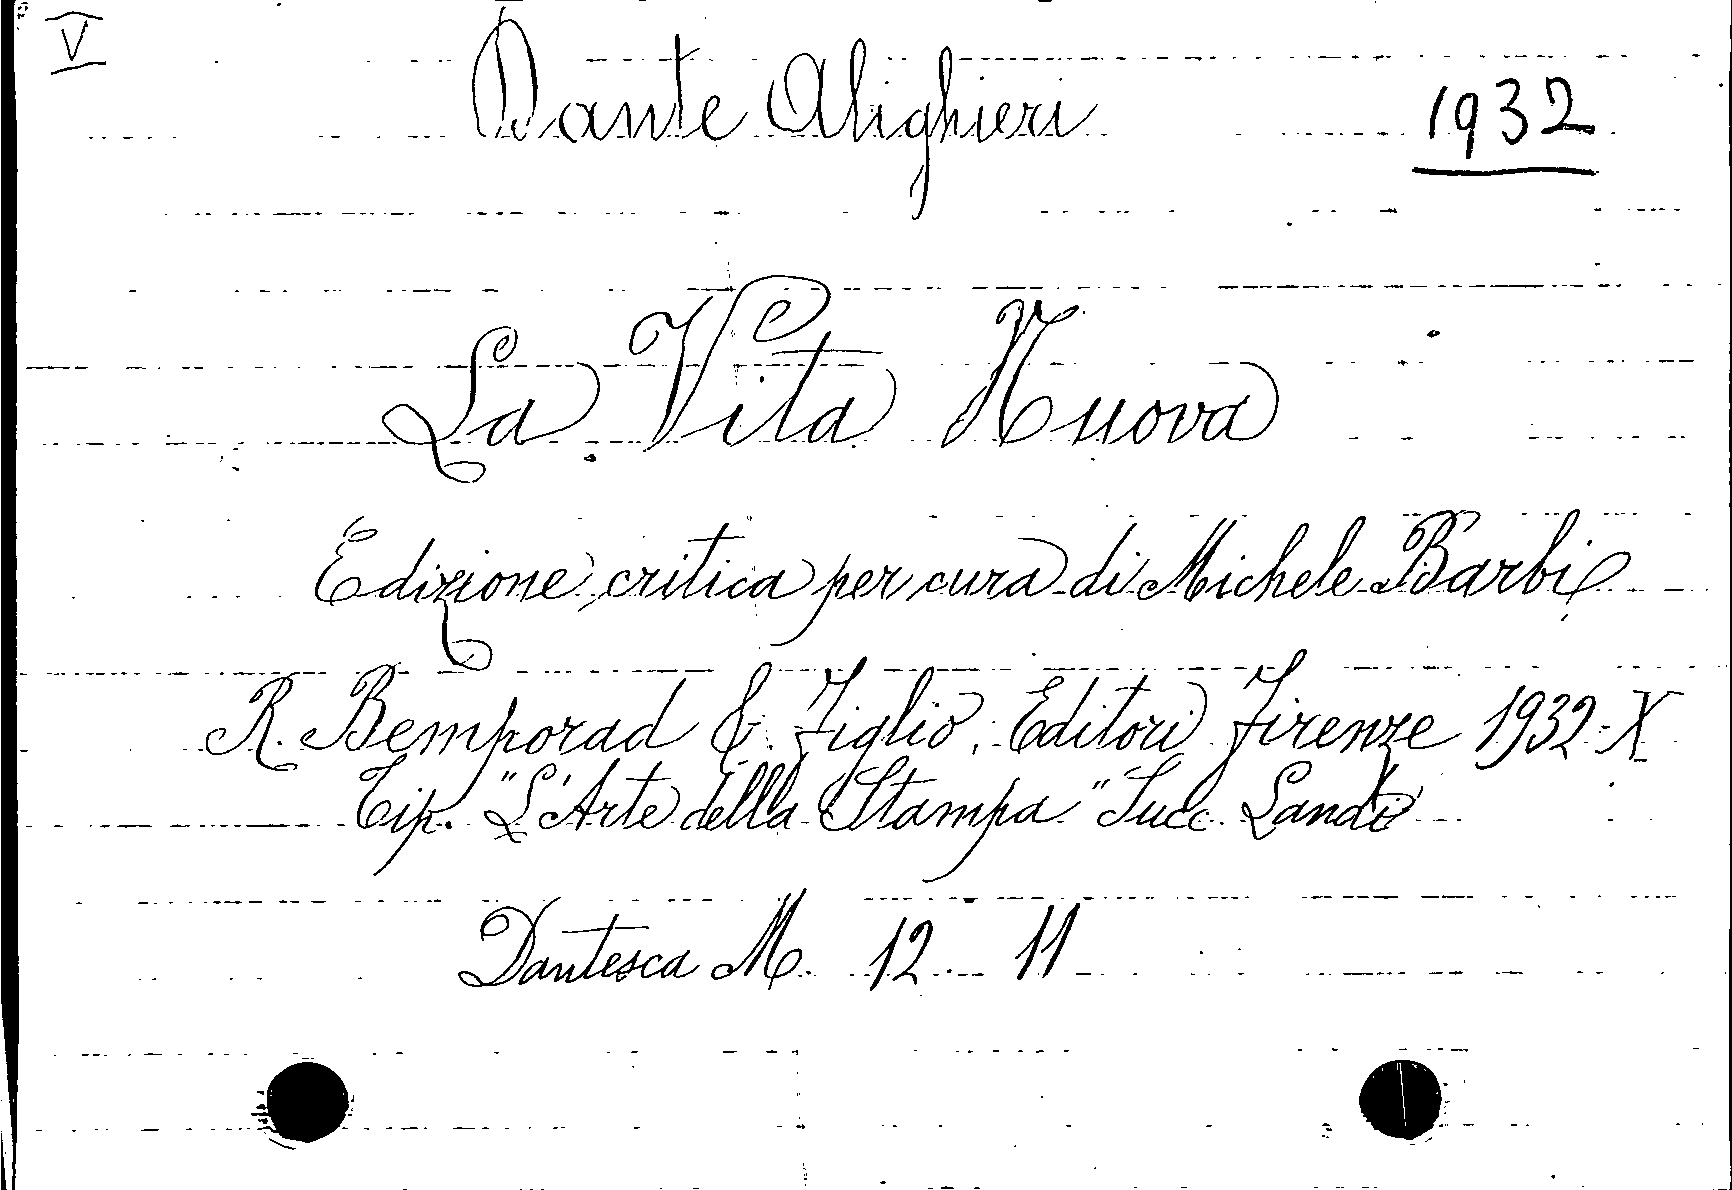 V
Dante Alighieri
1932
La Vita Nuova
Edizione critica per cura di Michele Barbi
R. Bemporad & Figlio, Editori Firenze 1932-X
Tip. "L'Arte della Stampa" Succ. Landi
Dantesca M. 12 11